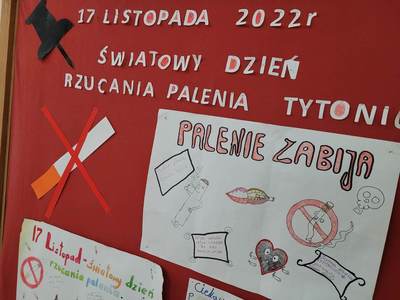 17 LISTOPADA 2022r
ŚWIATOWY DZIEŃ
RZUCANIA PALENIA TYTONIU
PALENIE ZABIJA
17 Listopad - światowy dzień
rzucania palenia
Ciekaw